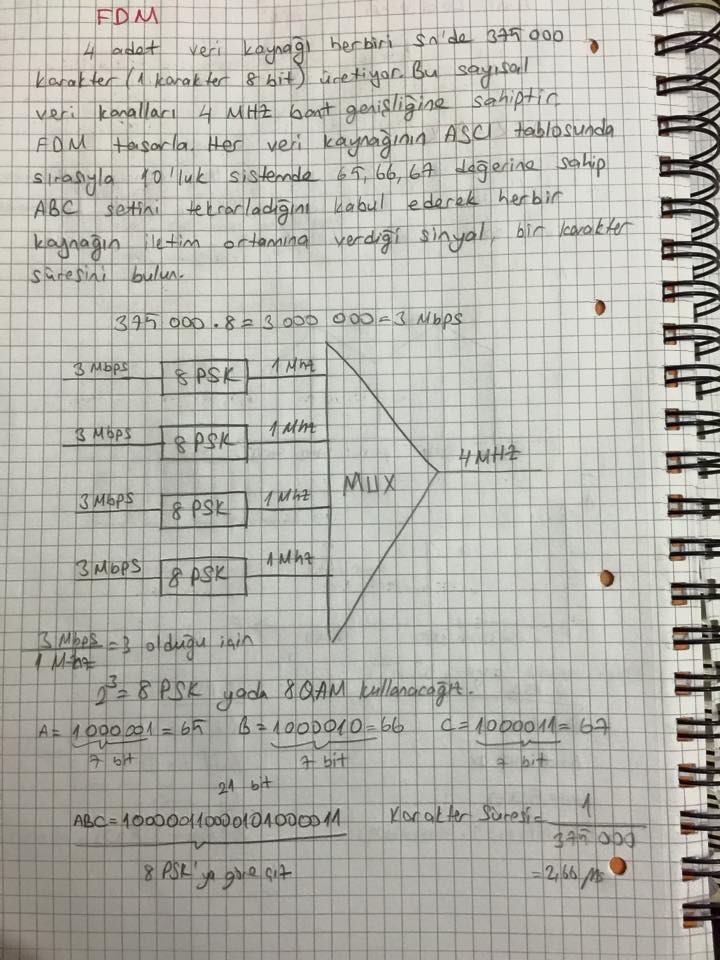 FDM
4 adet veri kaynağı herbiri sn'de 375 000
karakter (1 karakter 8 bit) üretiyor. Bu sayısal
veri kanalları 4 MHZ bant genişliğine sahiptir.
FDM tasarla. Her veri kaynağının ASCI tablosunda
sırasıyla 10'luk sistemde 65, 66, 67 değerine sahip
ABC setini tekrarladığını kabul ederek herbir
kaynağın iletim ortamına verdiği sinyal, bir karakter
süresini bulun.
375 000 . 8 = 3 000 000 = 3 Mbps
3 Mbps 8 PSK 1 Mhz
3 Mbps 8 PSK 1 Mhz
4 MHZ
MUX
3 Mbps 8 PSK 1 Mhz
3 Mbps 8 PSK 1 Mhz
3 Mbps / 1 Mhz = 3 olduğu için
2³ = 8 PSK yada 8 QAM kullanacağız.
A = 1000001 = 65 B = 1000010 = 66 C = 1000011 = 67
7 bit 7 bit 7 bit
21 bit
ABC = 100000110000101000011 Karakter Süresi = 1 / 375 000
8 PSK'ya göre çiz = 2,66 µs